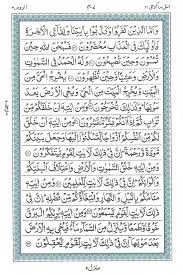 الروم ۳۰
وَاَمَّا الَّذِيْنَ كَفَرُوْا وَكَذَّبُوْا بِاٰيٰتِنَا وَلِقَآئِ الْاٰخِرَةِ
فَاُولٰٓئِكَ فِي الْعَذَابِ مُحْضَرُوْنَ ۝ فَسُبْحٰنَ اللّٰهِ حِيْنَ
تُمْسُوْنَ وَحِيْنَ تُصْبِحُوْنَ ۝ وَلَهُ الْحَمْدُ فِي السَّمٰوٰتِ
وَالْاَرْضِ وَعَشِيًّا وَّحِيْنَ تُظْهِرُوْنَ ۝ يُخْرِجُ الْحَيَّ مِنَ
الْمَيِّتِ وَيُخْرِجُ الْمَيِّتَ مِنَ الْحَيِّ وَيُحْيِ الْاَرْضَ بَعْدَ
مَوْتِهَا وَكَذٰلِكَ تُخْرَجُوْنَ ۝ وَمِنْ اٰيٰتِهٖٓ اَنْ خَلَقَكُمْ مِّنْ
تُرَابٍ ثُمَّ اِذَآ اَنْتُمْ بَشَرٌ تَنْتَشِرُوْنَ ۝ وَمِنْ اٰيٰتِهٖٓ اَنْ خَلَقَ
لَكُمْ مِّنْ اَنْفُسِكُمْ اَزْوَاجًا لِّتَسْكُنُوْٓا اِلَيْهَا وَجَعَلَ بَيْنَكُمْ
مَّوَدَّةً وَّرَحْمَةً اِنَّ فِيْ ذٰلِكَ لَاٰيٰتٍ لِّقَوْمٍ يَّتَفَكَّرُوْنَ ۝
وَمِنْ اٰيٰتِهٖ خَلْقُ السَّمٰوٰتِ وَالْاَرْضِ وَاخْتِلَافُ اَلْسِنَتِكُمْ
وَاَلْوَانِكُمْ اِنَّ فِيْ ذٰلِكَ لَاٰيٰتٍ لِّلْعٰلِمِيْنَ ۝ وَمِنْ اٰيٰتِهٖ
مَنَامُكُمْ بِالَّيْلِ وَالنَّهَارِ وَابْتِغَآؤُكُمْ مِّنْ فَضْلِهٖ اِنَّ فِيْ
ذٰلِكَ لَاٰيٰتٍ لِّقَوْمٍ يَّسْمَعُوْنَ ۝ وَمِنْ اٰيٰتِهٖ يُرِيْكُمُ الْبَرْقَ
خَوْفًا وَّطَمَعًا وَّيُنَزِّلُ مِنَ السَّمَآءِ مَآءً فَيُحْيٖ بِهِ الْاَرْضَ
بَعْدَ مَوْتِهَا اِنَّ فِيْ ذٰلِكَ لَاٰيٰتٍ لِّقَوْمٍ يَّعْقِلُوْنَ ۝
منزل ۵